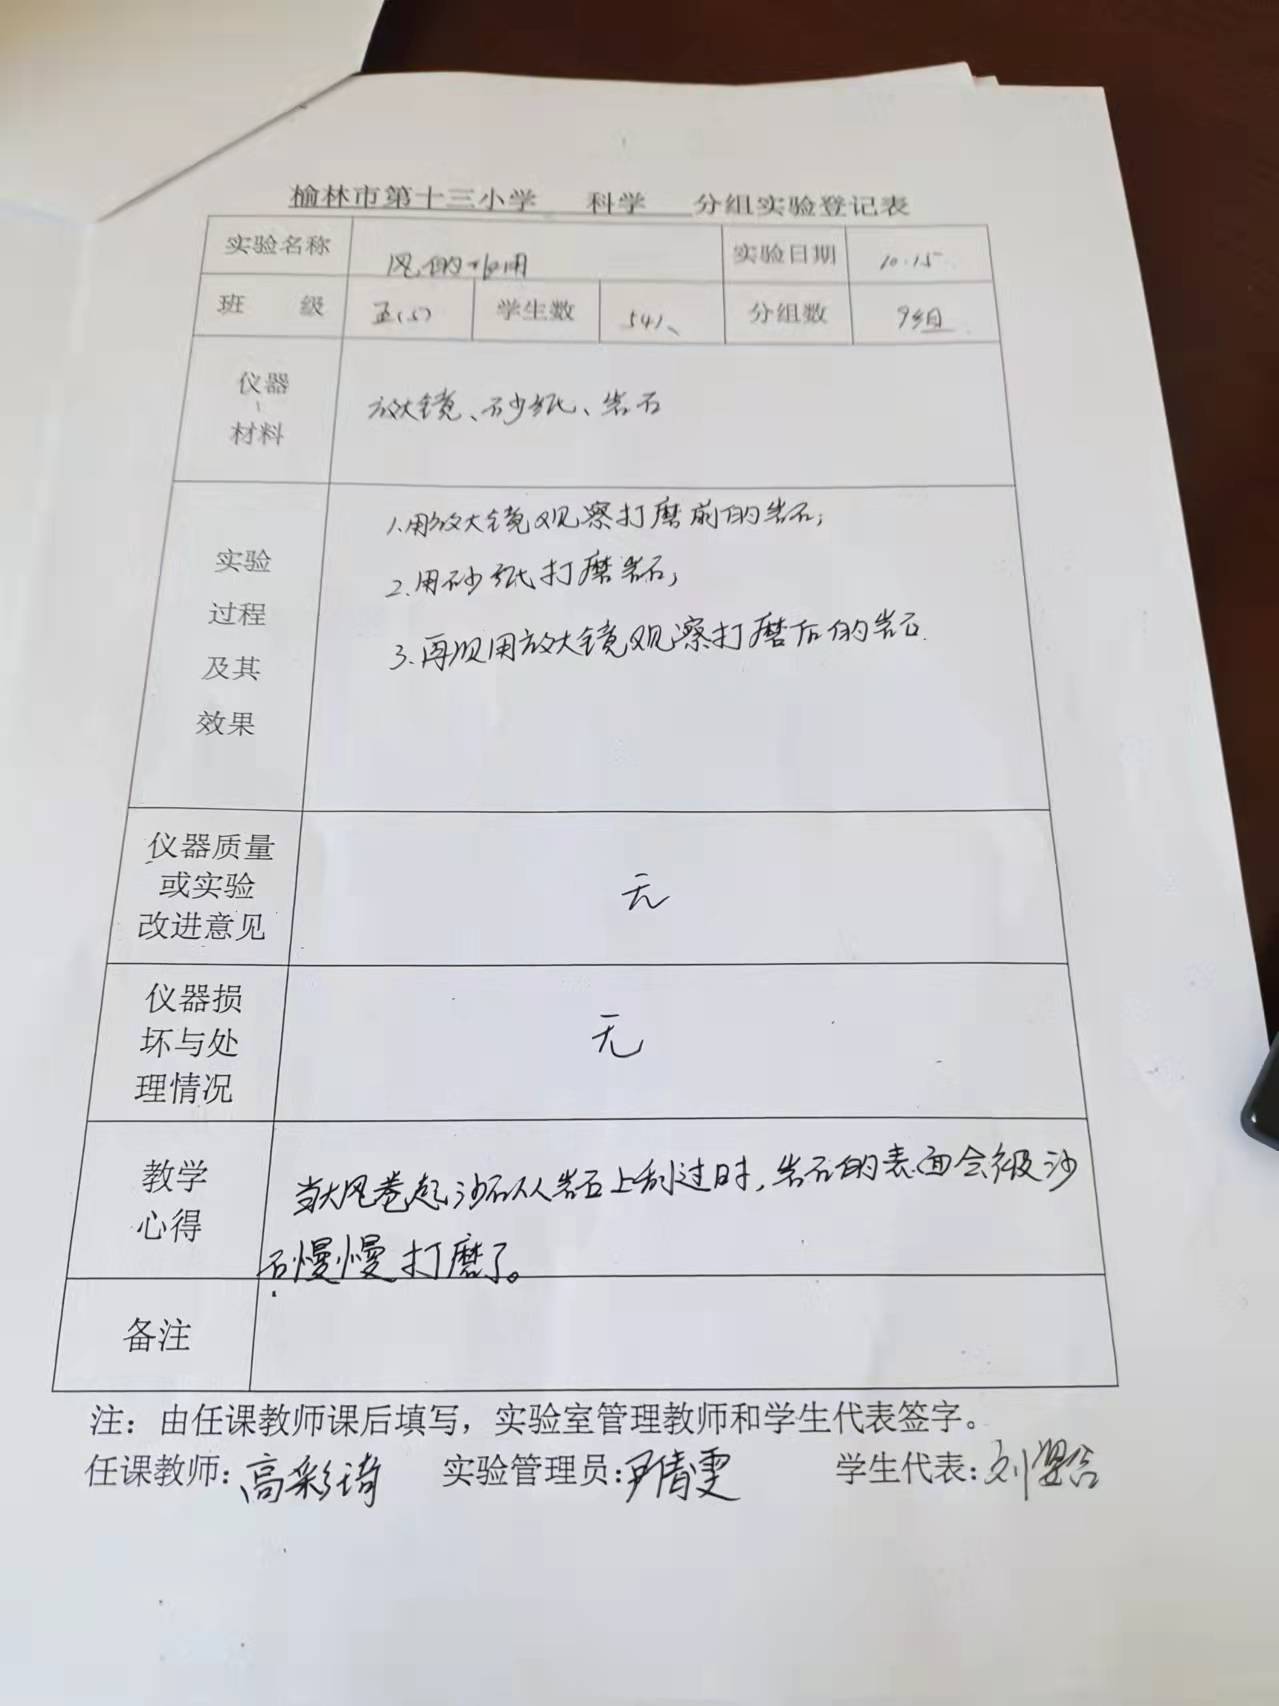 榆林市第十三小学 科学 分组实验登记表
实验名称 风的作用 实验日期 10.15
班 级 五(5) 学生数 54人 分组数 9组
仪器
、
材料
放大镜、砂纸、岩石
实验
过程
及其
效果
1.用放大镜观察打磨前的岩石;
2.用砂纸打磨岩石;
3.再次用放大镜观察打磨后的岩石.
仪器质量
或实验
改进意见
无
仪器损
坏与处
理情况
无
教学
心得
当大风卷起沙石从岩石上刮过时,岩石的表面会被沙
石慢慢打磨了。
备注
注:由任课教师课后填写,实验室管理教师和学生代表签字。
任课教师:高彩琦 实验管理员:倩雯 学生代表:刘